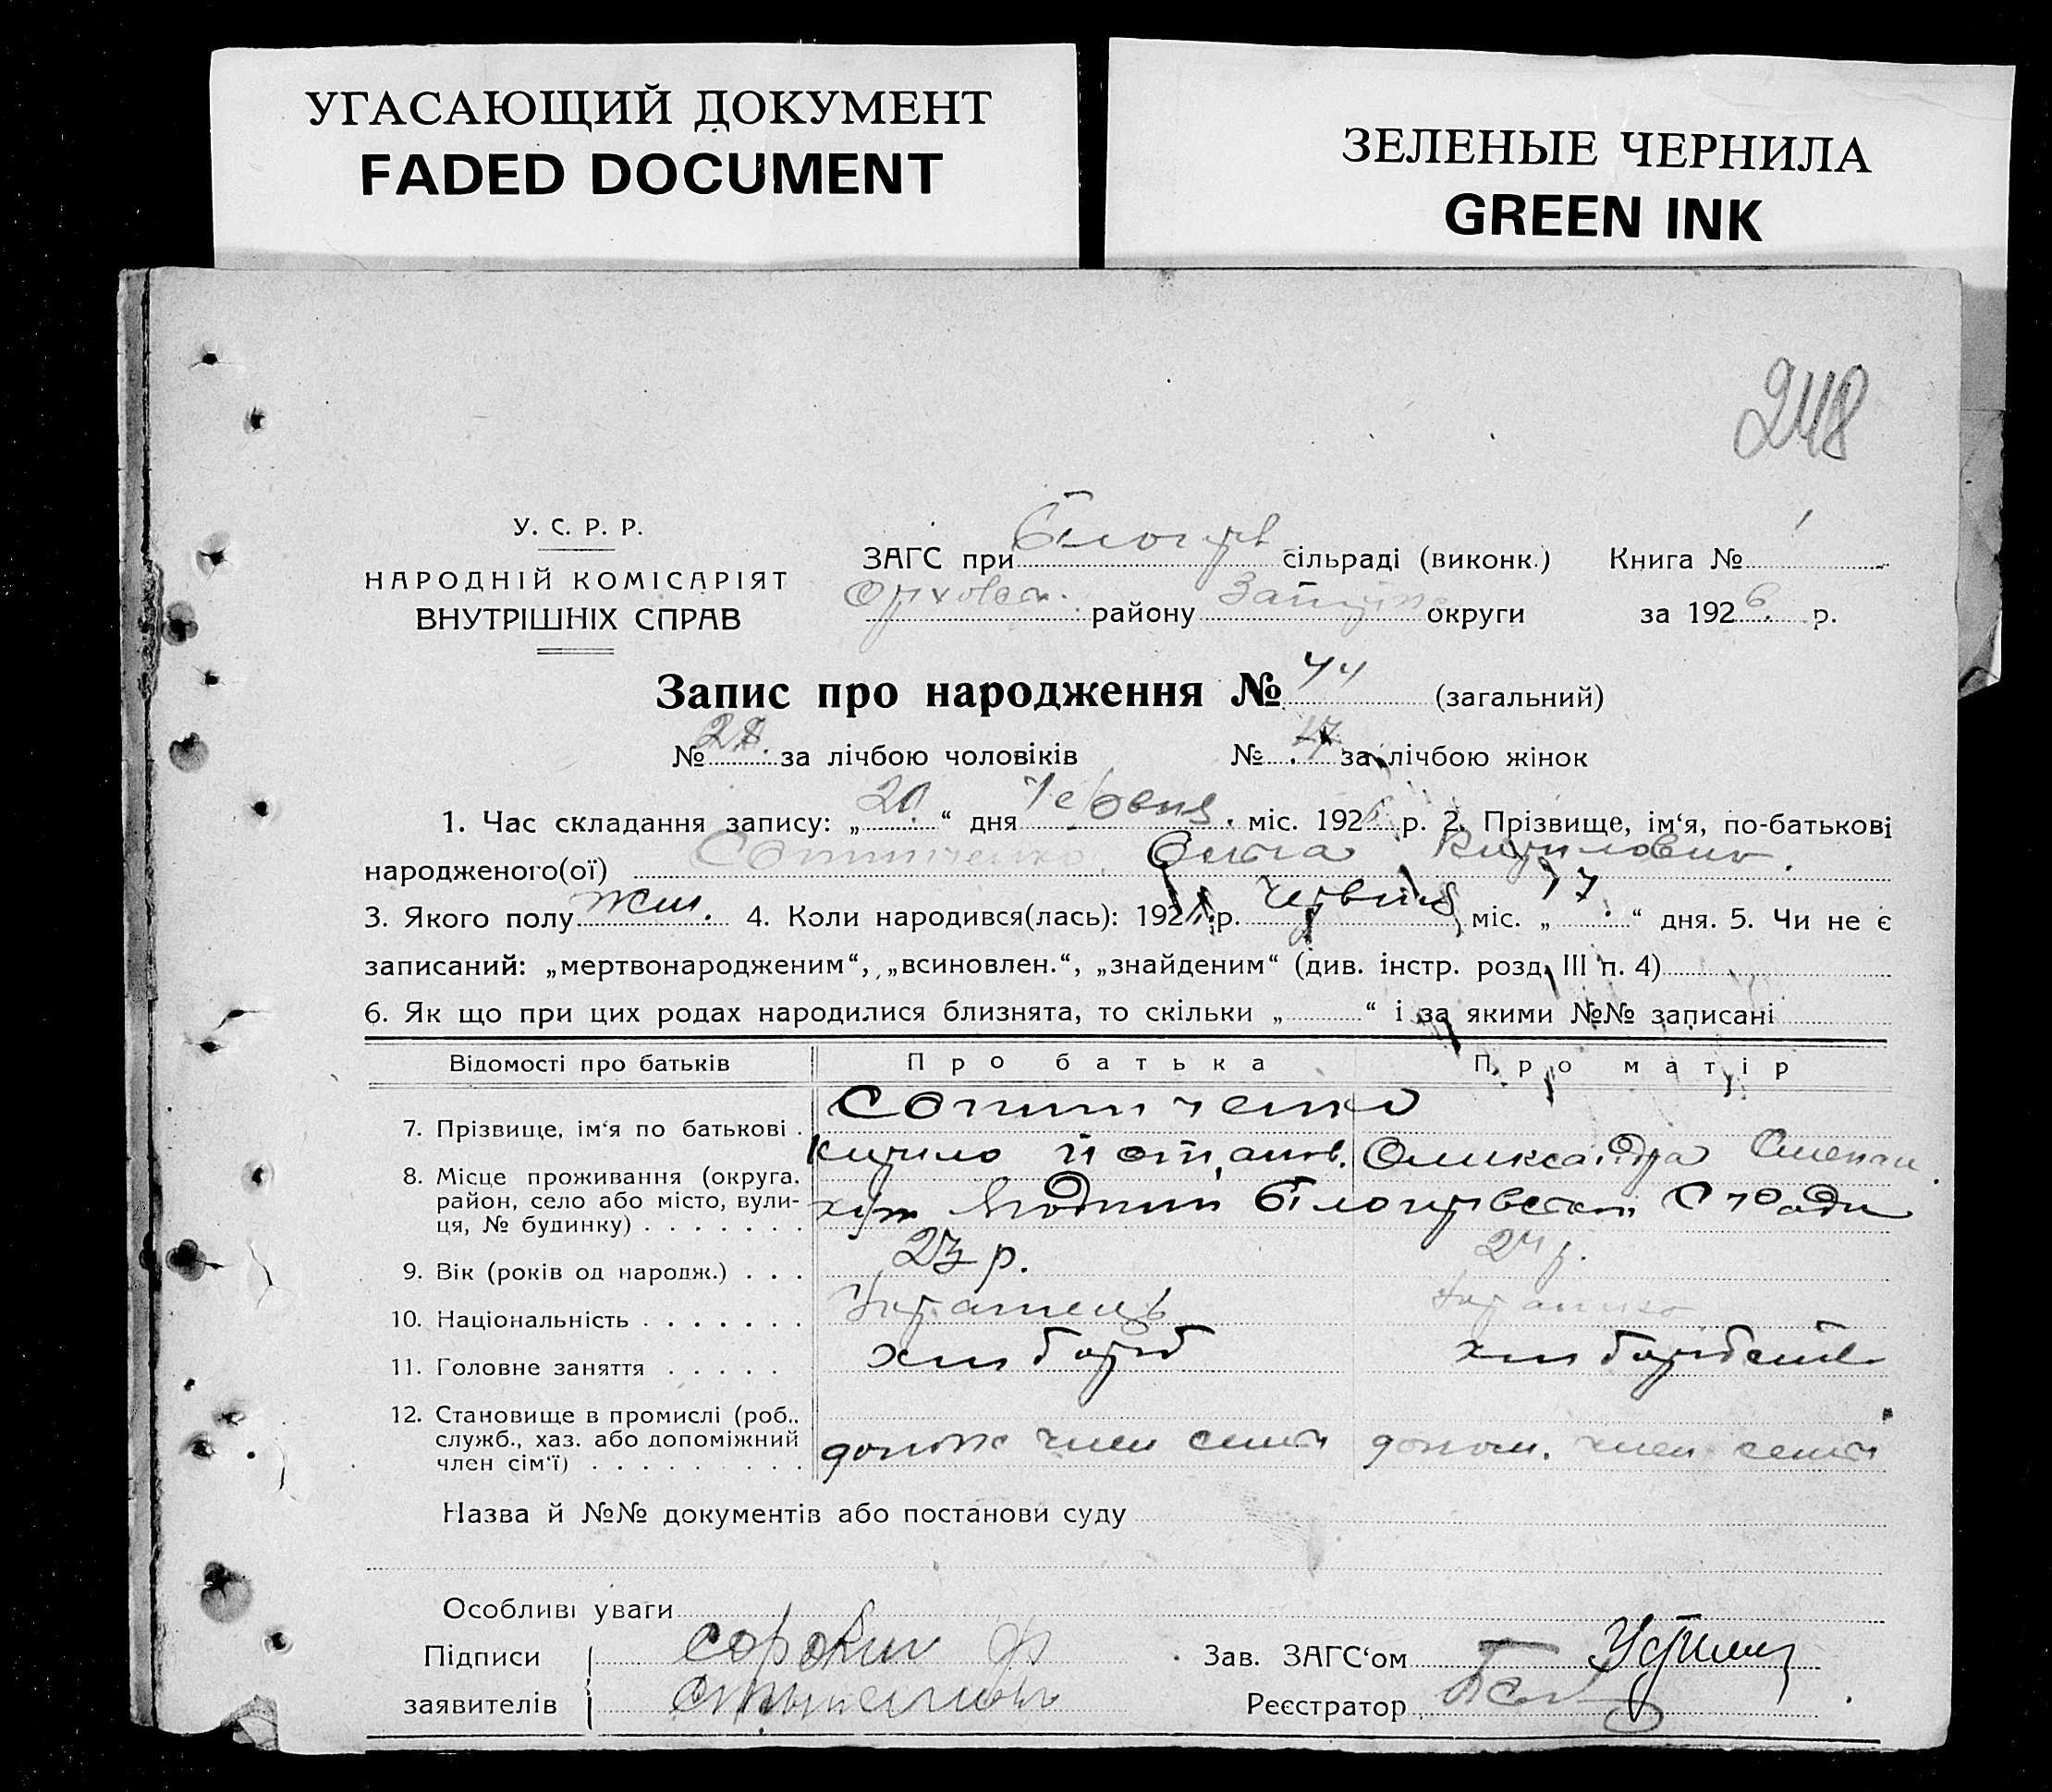 УГАСАЮЩИЙ ДОКУМЕНТ
FADED DOCUMENT
ЗЕЛЕНЫЕ ЧЕРНИЛА
GREEN INK
248
У. С. Р. Р.
НАРОДНІЙ КОМІСАРІЯТ
ВНУТРІШНІХ СПРАВ
ЗАГС при Білогірв сільраді (виконк.) Книга № 1
району округи за 1926 р.
Запис про народження № 44 (загальний)
№ за лічбою чоловіків № 17 за лічбою жінок
1. Час складання запису: „20“ дня Червня міс. 192 р. 2. Прізвище, ім‘я, по-батькові
народженого(ої) Ольга Кириловна.
3. Якого полу жін. 4. Коли народився(лась): 192 р. червня міс. „17.“ дня. 5. Чи не є
записаний: „мертвонародженим“, „всиновлен.“, „знайденим“ (див. інстр. розд. III п. 4)
6. Як що при цих родах народилися близнята, то скільки „ “ і за якими №№ записані
Відомості про батьків Про батька Про матір
7. Прізвище, ім‘я по батькові .
Кирило Олександра
8. Місце проживання (округа, район, село або місто, вули-ця, № будинку) . . . . . . .
хут Ягодний
9. Вік (років од народж.) . . . 23 р. 24 р.
10. Національність . . . . . . . Украінець Украінка
11. Головне заняття . . . . . хлібороб хліборобств
12. Становище в промислі (роб., служб., хаз. або допоміжний член сім‘ї) . . . . . . . . . допом член семи допом. член семи
Назва й №№ документів або постанови суду
Особливі уваги
Підписи заявителів
сорокин ф
Зав. ЗАГС‘ом
Реєстратор